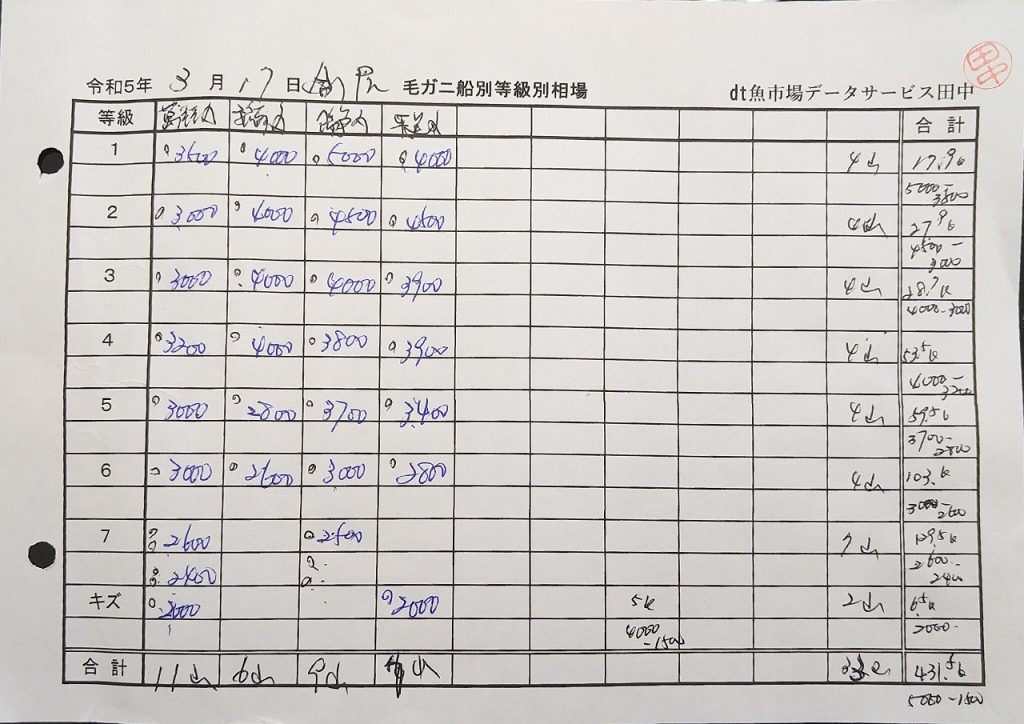 令和5年 3月17日 毛ガニ船別等級別相場 dt魚市場データサービス田中
田中
等級 合計
1 3500 4000 5000 4000 4山 17.9k
5000-3500
2 3000 4000 4500 4500 4山 27.9k
4500-3000
3 3000 4000 4000 3900 4山 28.7k
4000-3000
4 3200 4000 3800 3900 4山 53.5k
4000-3200
5 3000 2800 3700 3400 4山 59.5k
3700-2800
6 3000 2600 3000 2800 4山 103.k
3000-2600
7 2600 2500 7山 129.5k
2400 2600-2400
キズ 2000 2000 5k 2山 6.5k
4000-1500 2000-
合計 11山 6山 9山 431.5k
5000-1500